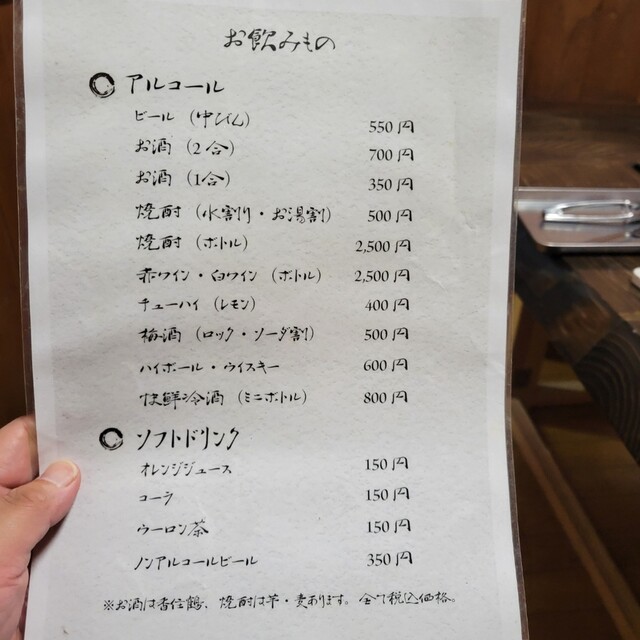 お飲みもの
アルコール
ビール（中びん） 550円
お酒（2合） 700円
お酒（1合） 350円
焼酎（水割り・お湯割） 500円
焼酎（ボトル） 2,500円
赤ワイン・白ワイン（ボトル） 2,500円
チューハイ（レモン） 400円
梅酒（ロック・ソーダ割） 500円
ハイボール・ウイスキー 600円
快鮮冷酒（ミニボトル） 800円
ソフトドリンク
オレンジジュース 150円
コーラ 150円
ウーロン茶 150円
ノンアルコールビール 350円
※お酒は香住鶴、焼酎は芋・麦あります。全て税込価格。